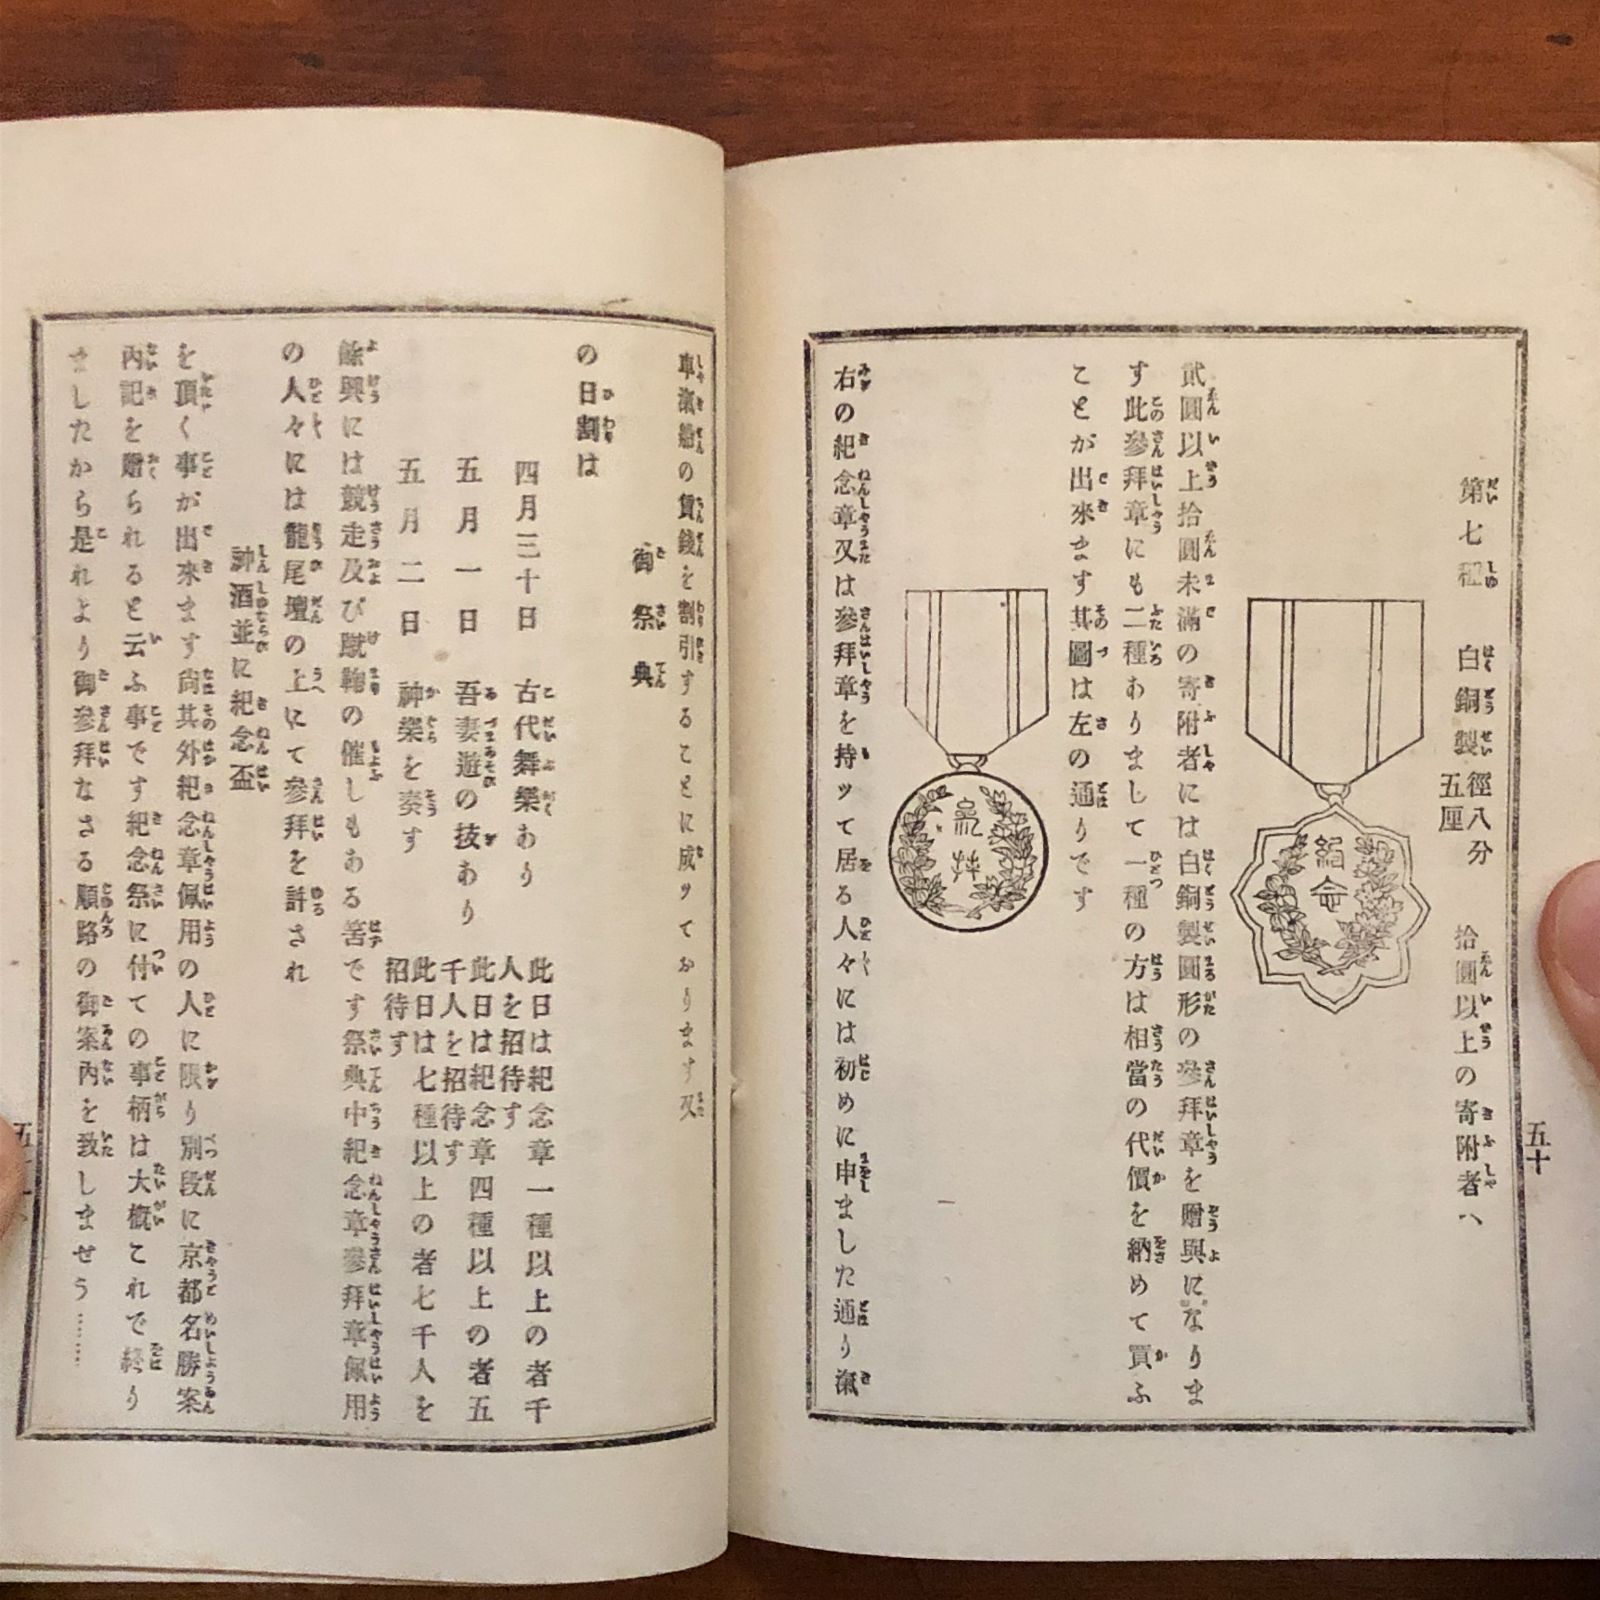 第七種　白銅製　徑八分五厘　拾圓以上の寄附者へ
紀念
貳圓以上拾圓未滿の寄附者には白銅製圓形の參拜章を贈與になりま
す此參拜章にも二種ありまして一種の方は相當の代價を納めて買ふ
ことが出來ます其圖は左の通りです
參拜
右の紀念章又は參拜章を持ッて居る人々には初めに申ました通り滊
五十
車滊船の賃錢を割引することに成ッてあります又
御祭典
の日割は
四月三十日　古代舞樂あり　此日は紀念章一種以上の者千人を招待す
五月一日　吾妻遊の技あり　此日は紀念章四種以上の者五千人を招待す
五月二日　神樂を奏す　此日は七種以上の者七千人を招待す
餘興には競走及び蹴鞠の催しもある筈です祭典中紀念章參拜章佩用
の人々には龍尾壇の上にて參拜を許され
神酒並に紀念盃
を頂く事が出來ます尙其外紀念章佩用の人に限り別段に京都名勝案
內記を贈られると云ふ事です紀念祭に付ての事柄は大槪これで終り
ましたから是れより御參拜なさる順路の御案內を致しませう……